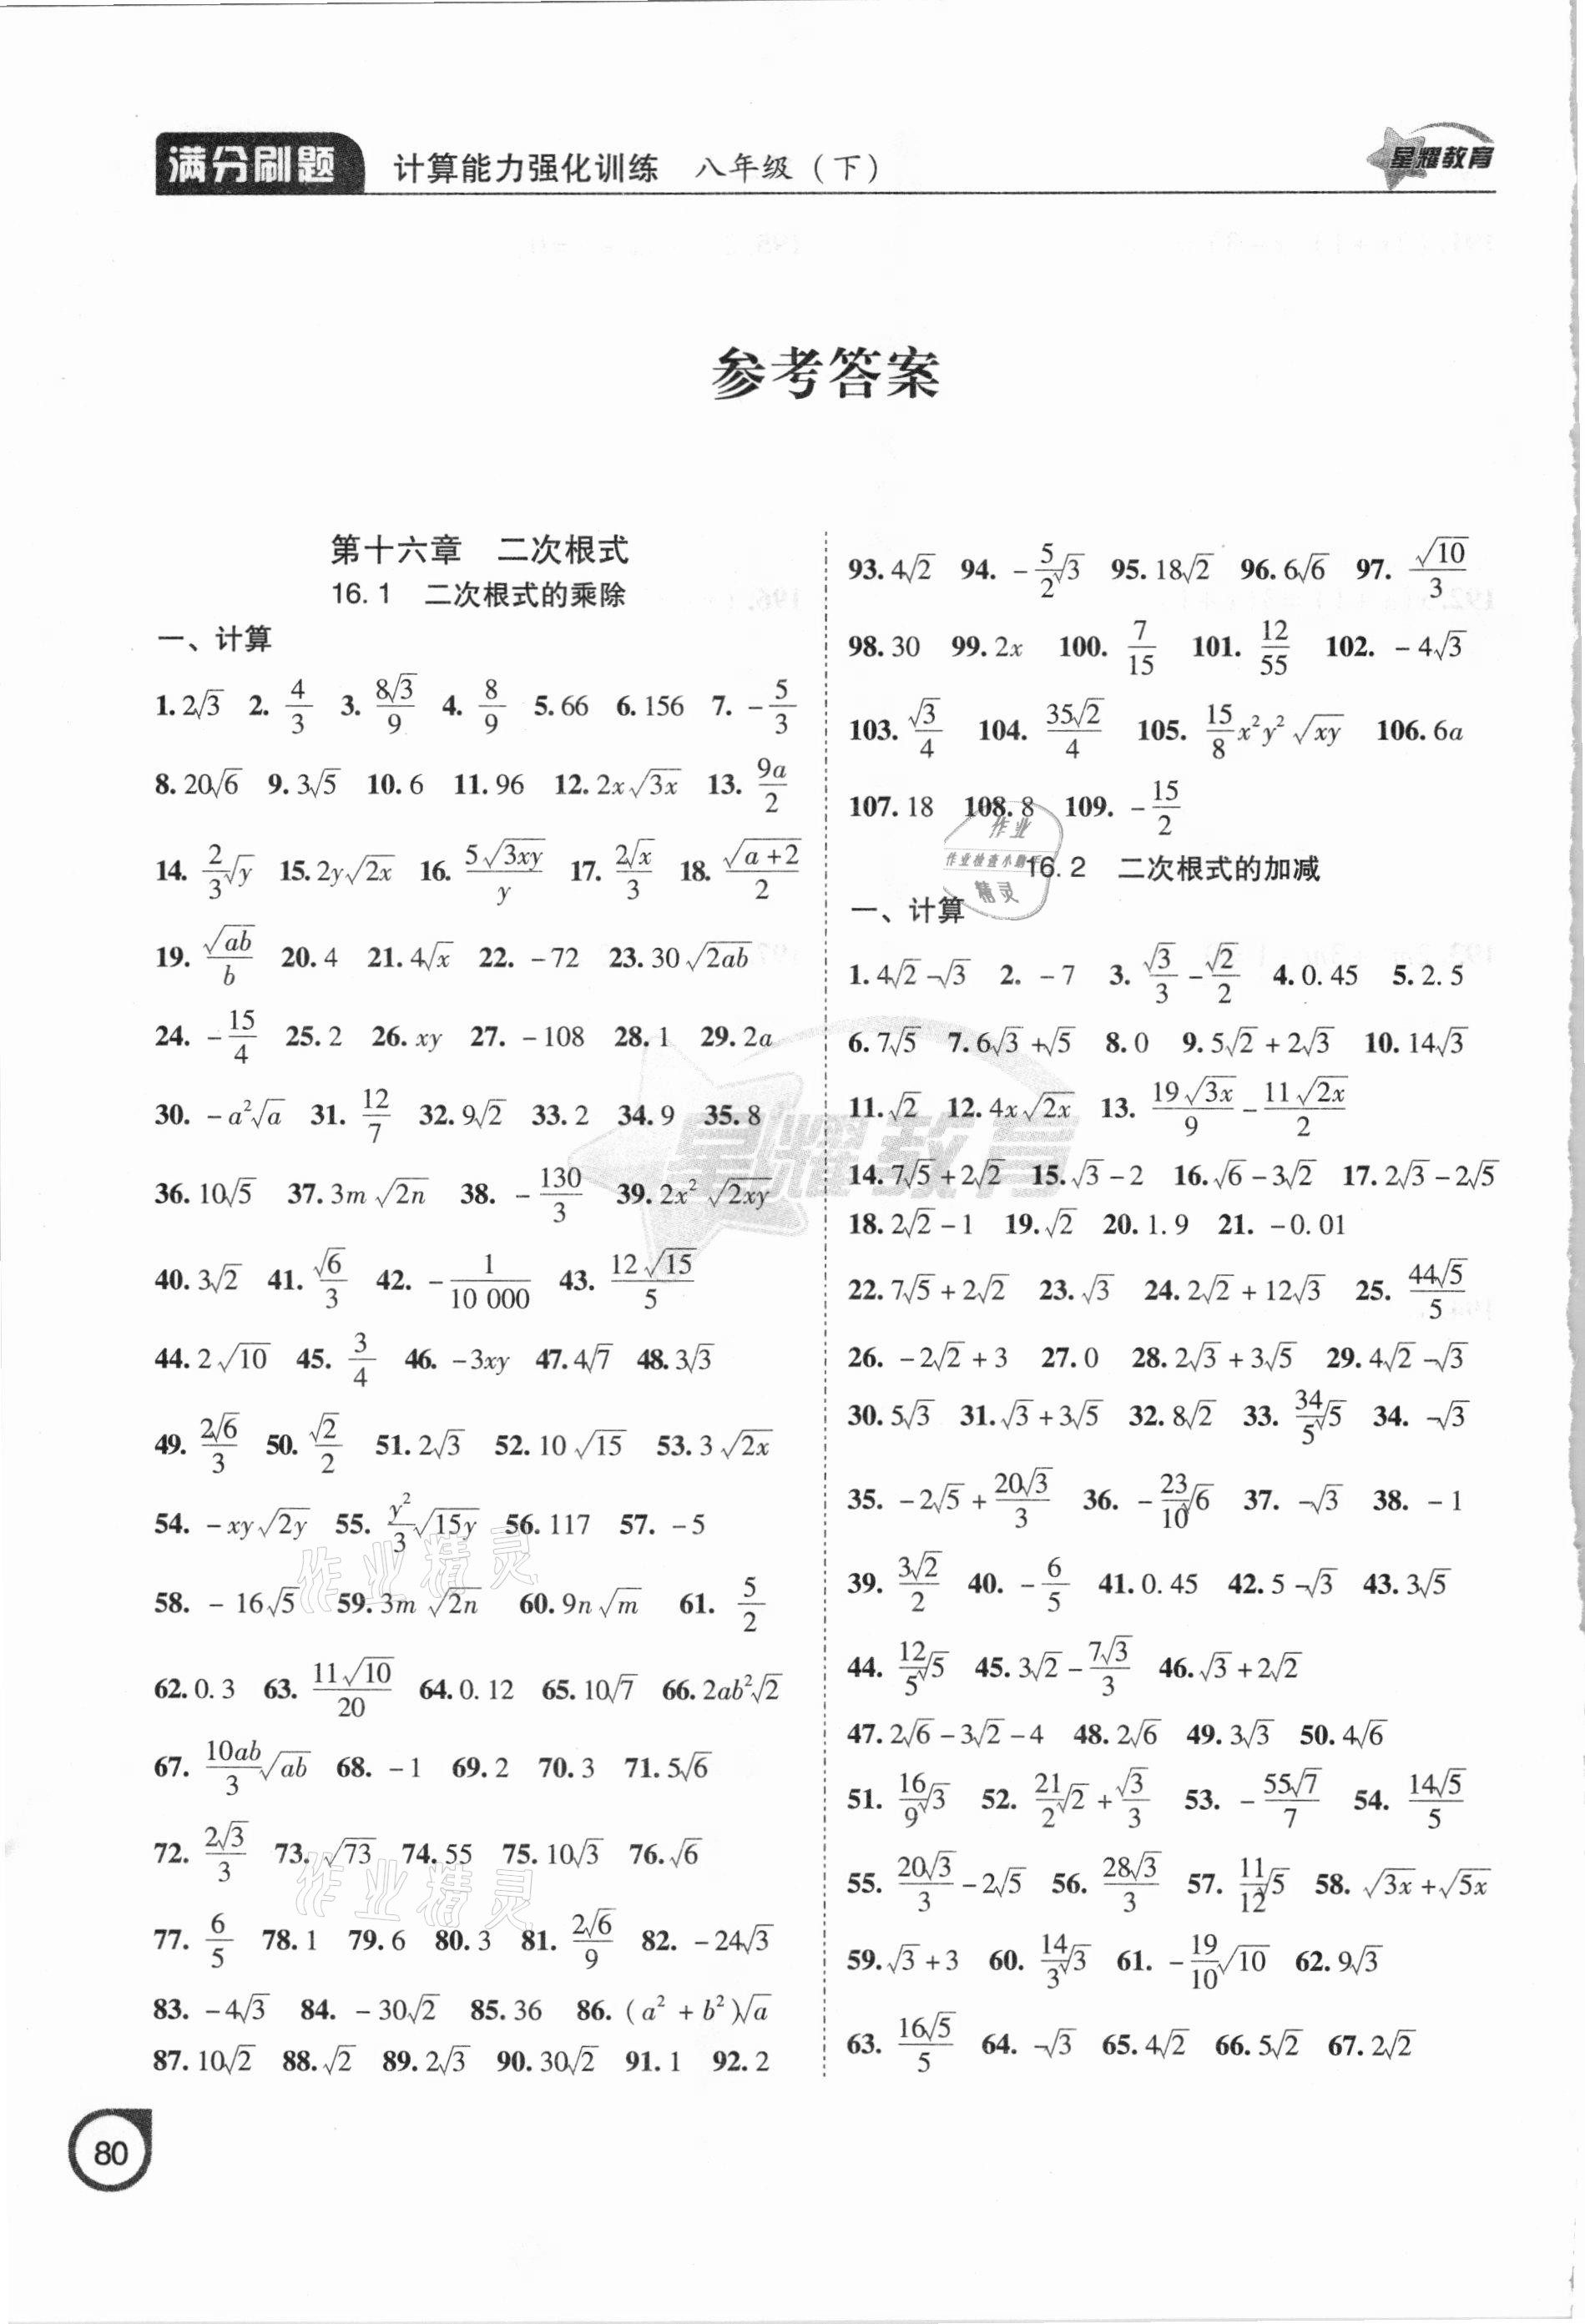 满分刷题 计算能力强化训练 八年级（下） 星耀教育
参考答案
第十六章 二次根式
16.1 二次根式的乘除
一、计算
1. 2√3 2. 4/3 3. 8√3/9 4. 8/9 5. 66 6. 156 7. -5/3
8. 20√6 9. 3√5 10. 6 11. 96 12. 2x√(3x) 13. 9a/2
14. (2/3)√y 15. 2y√(2x) 16. 5√(3xy)/y 17. 2√x/3 18. √(a+2)/2
19. √(ab)/b 20. 4 21. 4√x 22. -72 23. 30√(2ab)
24. -15/4 25. 2 26. xy 27. -108 28. 1 29. 2a
30. -a²√a 31. 12/7 32. 9√2 33. 2 34. 9 35. 8
36. 10√5 37. 3m√(2n) 38. -130/3 39. 2x²√(2xy)
40. 3√2 41. √6/3 42. -1/10 000 43. 12√15/5
44. 2√10 45. 3/4 46. -3xy 47. 4√7 48. 3√3
49. 2√6/3 50. √2/2 51. 2√3 52. 10√15 53. 3√(2x)
54. -xy√(2y) 55. (y²/3)√(15y) 56. 117 57. -5
58. -16√5 59. 3m√(2n) 60. 9n√m 61. 5/2
62. 0.3 63. 11√10/20 64. 0.12 65. 10√7 66. 2ab²√2
67. (10ab/3)√(ab) 68. -1 69. 2 70. 3 71. 5√6
72. 2√3/3 73. √73 74. 55 75. 10√3 76. √6
77. 6/5 78. 1 79. 6 80. 3 81. 2√6/9 82. -24√3
83. -4√3 84. -30√2 85. 36 86. (a²+b²)√a
87. 10√2 88. √2 89. 2√3 90. 30√2 91. 1 92. 2
93. 4√2 94. -(5/2)√3 95. 18√2 96. 6√6 97. √10/3
98. 30 99. 2x 100. 7/15 101. 12/55 102. -4√3
103. √3/4 104. 35√2/4 105. (15/8)x²y²√(xy) 106. 6a
107. 18 108. 8 109. -15/2
16.2 二次根式的加减
一、计算
1. 4√2-√3 2. -7 3. √3/3-√2/2 4. 0.45 5. 2.5
6. 7√5 7. 6√3+√5 8. 0 9. 5√2+2√3 10. 14√3
11. √2 12. 4x√(2x) 13. 19√(3x)/9-11√(2x)/2
14. 7√5+2√2 15. √3-2 16. √6-3√2 17. 2√3-2√5
18. 2√2-1 19. √2 20. 1.9 21. -0.01
22. 7√5+2√2 23. √3 24. 2√2+12√3 25. 44√5/5
26. -2√2+3 27. 0 28. 2√3+3√5 29. 4√2-√3
30. 5√3 31. √3+3√5 32. 8√2 33. (34/5)√5 34. -√3
35. -2√5+20√3/3 36. -(23/10)√6 37. -√3 38. -1
39. 3√2/2 40. -6/5 41. 0.45 42. 5-√3 43. 3√5
44. (12/5)√5 45. 3√2-7√3/3 46. √3+2√2
47. 2√6-3√2-4 48. 2√6 49. 3√3 50. 4√6
51. (16/9)√3 52. (21/2)√2+√3/3 53. -55√7/7 54. 14√5/5
55. 20√3/3-2√5 56. 28√3/3 57. (11/12)√5 58. √(3x)+√(5x)
59. √3+3 60. (14/3)√3 61. -(19/10)√10 62. 9√3
63. 16√5/5 64. -√3 65. 4√2 66. 5√2 67. 2√2
80
星耀教育
作业精灵
作业精灵
作业
精灵